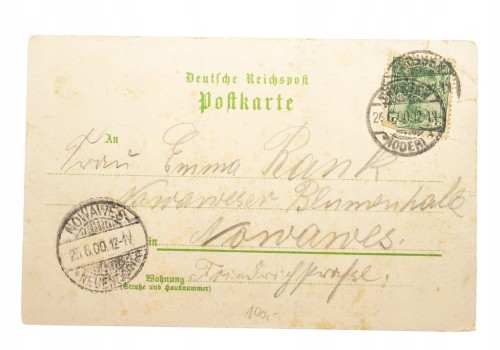 Deutsche Reichspost
Postkarte
An
Frau Emma Rank
Nowaweser Blumenhalle
in Nowawes.
Wohnung Friedrichstraße.
(Straße und Hausnummer)
100,-
NOWAWES
25.6.00.12-1V
(NEUENDORF)
25.6.00.12-1
(ODER)